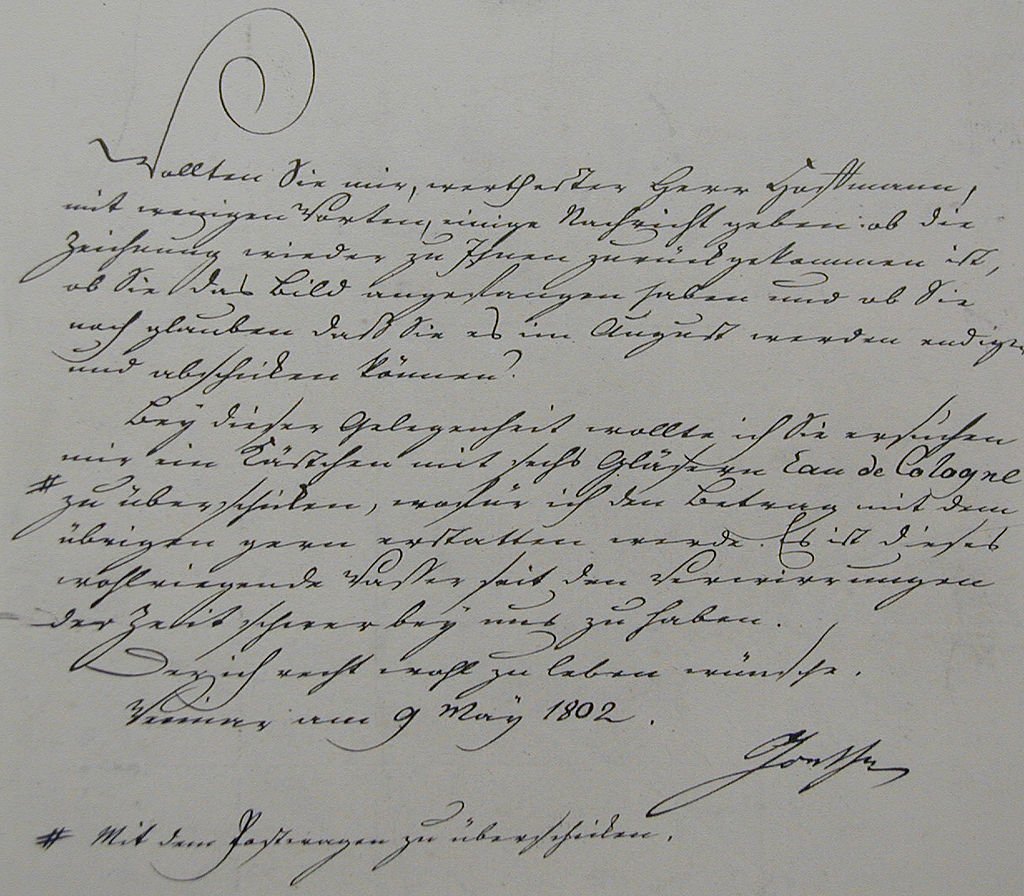 Wollten Sie mir, werthester Herr Hoffmann,
mit wenigen Worten, einige Nachricht geben: ob die
Zeichnung wieder zu Ihnen zurück gekommen ist,
ob Sie das Bild angefangen haben und ob Sie
noch glauben daß Sie es im August werden endigen
und abschicken können.
Bey dieser Gelegenheit wollte ich Sie ersuchen
mir ein Kästchen mit sechs Gläsern Eau de Cologne
# zu überschicken, wofür ich den Betrag mit dem
übrigen gern erstatten werde. Es ist dieses
wohlriegende Wasser seit den Verwirrungen
der Zeit schwer bey uns zu haben.
Der ich recht wohl zu leben wünsche.
Weimar am 9 May 1802.
Goethe
# Mit dem Postwagen zu überschicken.